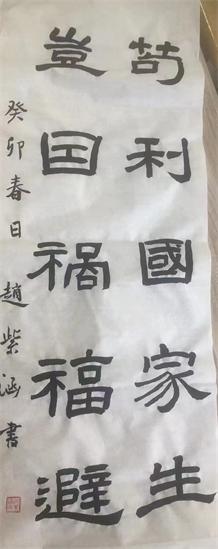 苟利國家生
豈因禍福避
癸卯春日趙紫涵書